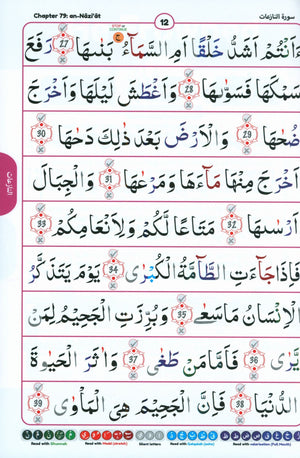 Chapter 79: an-Nāzi'āt
STOP or CONTINUE
ج
12
سورة النازعات
ءَاَنْتُمْ اَشَدُّ خَلْقًا اَمِ السَّمَآءُ بَنٰىهَا 27 رَفَعَ
سَمْكَهَا فَسَوّٰىهَا 28 وَاَغْطَشَ لَيْلَهَا وَاَخْرَجَ
ضُحٰىهَا 29 وَالْاَرْضَ بَعْدَ ذٰلِكَ دَحٰىهَا 30
اَخْرَجَ مِنْهَا مَآءَهَا وَمَرْعٰىهَا 31 وَالْجِبَالَ
اَرْسٰىهَا 32 مَتَاعًا لَّكُمْ وَلِاَنْعَامِكُمْ 33
فَاِذَا جَآءَتِ الطَّآمَّةُ الْكُبْرٰى 34 يَوْمَ يَتَذَكَّرُ
الْاِنْسَانُ مَا سَعٰى 35 وَبُرِّزَتِ الْجَحِيْمُ لِمَنْ
يَّرٰى 36 فَاَمَّا مَنْ طَغٰى 37 وَاٰثَرَ الْحَيٰوةَ
الدُّنْيَا 38 فَاِنَّ الْجَحِيْمَ هِىَ الْمَاْوٰى 39
النازعات
Read with Ghunnah
Read with Madd (stretch)
Silent letters
Read with Qalqalah (echo)